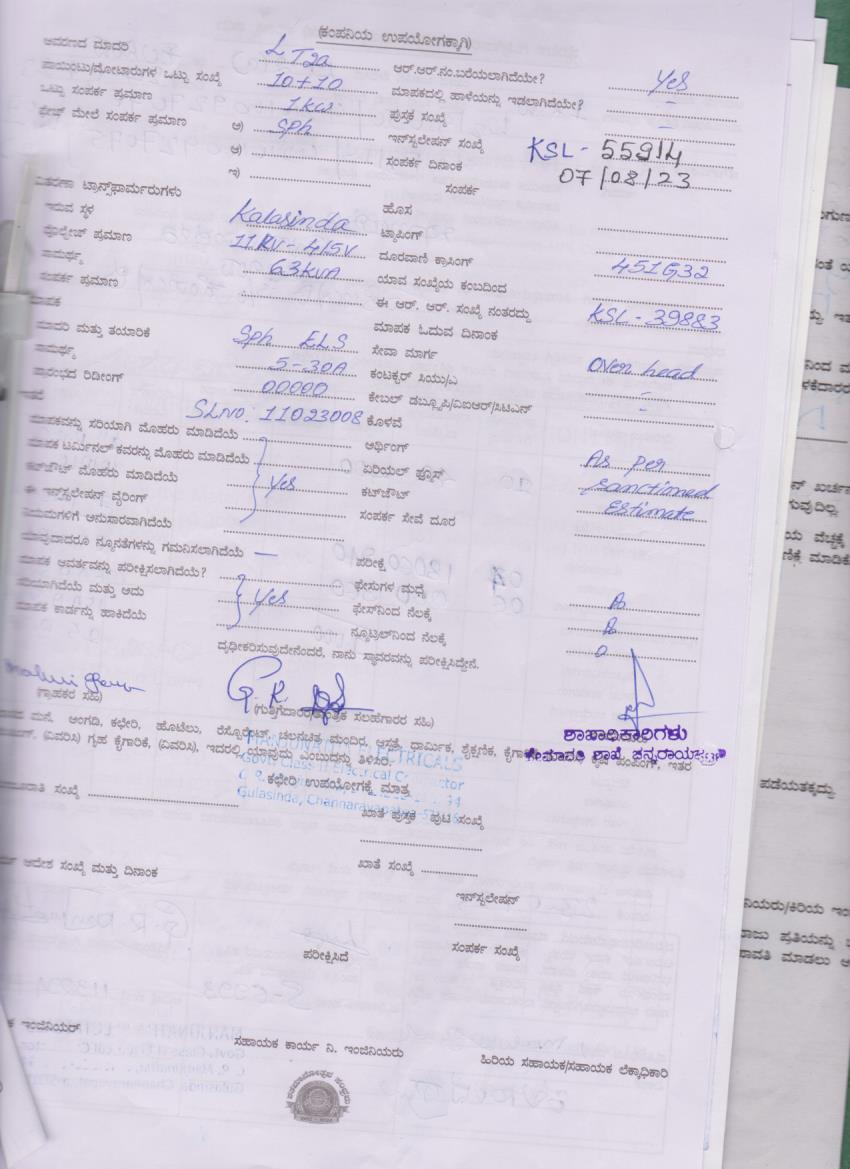 (ಕಂಪನಿಯ ಉಪಯೋಗಕ್ಕಾಗಿ)
ಆವರಣದ ಮಾದರಿ LT2a ಆರ್.ಆರ್.ನಂ.ಬರೆಯಲಾಗಿದೆಯೇ? Yes
ಪಾಯಿಂಟು/ಮೋಟಾರುಗಳ ಒಟ್ಟು ಸಂಖ್ಯೆ 10+10 ಮಾಪಕದಲ್ಲಿ ಹಾಳೆಯನ್ನು ಇಡಲಾಗಿದೆಯೇ? -
ಒಟ್ಟು ಸಂಪರ್ಕ ಪ್ರಮಾಣ 1kw ಪುಸ್ತಕ ಸಂಖ್ಯೆ -
ಫೇಜ್ ಮೇಲೆ ಸಂಪರ್ಕ ಪ್ರಮಾಣ ಅ) Sph ಇನ್‌ಸ್ಟಲೇಷನ್ ಸಂಖ್ಯೆ KSL - 55914
ಆ) ಸಂಪರ್ಕ ದಿನಾಂಕ 07/08/23
ಇ) ಸಂಪರ್ಕ
ವಿತರಣಾ ಟ್ರಾನ್ಸ್‌ಫಾರ್ಮರುಗಳು ಹೊಸ
ಇರುವ ಸ್ಥಳ Kalasinda ಟ್ಯಾಪಿಂಗ್
ವೋಲ್ಟೇಜ್ ಪ್ರಮಾಣ 11KV - 415V ದೂರವಾಣಿ ಕ್ರಾಸಿಂಗ್
ಸಾಮರ್ಥ್ಯ 63kVA ಯಾವ ಸಂಖ್ಯೆಯ ಕಂಬದಿಂದ 451G32
ಸಂಪರ್ಕ ಪ್ರಮಾಣ ಈ ಆರ್. ಆರ್. ಸಂಖ್ಯೆ ನಂತರದ್ದು KSL - 39883
ಮಾಪಕ ಮಾಪಕ ಓದುವ ದಿನಾಂಕ
ಮಾದರಿ ಮತ್ತು ತಯಾರಿಕೆ Sph ELS ಸೇವಾ ಮಾರ್ಗ Over head
ಸಾಮರ್ಥ್ಯ 5-30A ಕಂಟಕ್ಟರ್ ಸಿಯು/ಎ -
ಪ್ರಾರಂಭದ ರಿಡೀಂಗ್ 00000 ಕೇಬಲ್ ಡಬ್ಲ್ಯೂಪಿ/ಎಐಆರ್/ಸಿಟಿಎನ್ -
ಇತರೆ SLno: 11023008 ಕೊಳವೆ
ಮಾಪಕವನ್ನು ಸರಿಯಾಗಿ ಮೊಹರು ಮಾಡಿದೆಯೆ ಅರ್ಥಿಂಗ್ As per
ಮಾಪಕ ಟರ್ಮಿನಲ್ ಕವರನ್ನು ಮೊಹರು ಮಾಡಿದೆಯೆ ಏರಿಯಲ್ ಫ್ಯೂಸ್ Sanctioned
ಕಟ್‌ಔಟ್ ಮೊಹರು ಮಾಡಿದೆಯೆ Yes ಕಟ್‌ಔಟ್ Estimate
ಈ ಇನ್‌ಸ್ಟಲೇಷನ್ ವೈರಿಂಗ್ ಸಂಪರ್ಕ ಸೇವೆ ದೂರ
ನಿಯಮಗಳಿಗೆ ಅನುಸಾರವಾಗಿದೆಯೆ
ಯಾವುದಾದರೂ ನ್ಯೂನತೆಗಳನ್ನು ಗಮನಿಸಲಾಗಿದೆಯೆ — ಪರೀಕ್ಷೆ
ಮಾಪಕ ಆವರ್ತವನ್ನು ಪರೀಕ್ಷಿಸಲಾಗಿದೆಯೆ? ಫೇಸುಗಳ ಮಧ್ಯೆ
ಸರಿಯಾಗಿದೆಯೆ ಮತ್ತು ಅದು Yes ಫೇಸ್‌ನಿಂದ ನೆಲಕ್ಕೆ
ಮಾಪಕ ಕಾರ್ಡನ್ನು ಹಾಕಿದೆಯೆ ನ್ಯೂಟ್ರಲ್‌ನಿಂದ ನೆಲಕ್ಕೆ
ದೃಢೀಕರಿಸುವುದೇನೆಂದರೆ, ನಾನು ಸ್ಥಾವರವನ್ನು ಪರೀಕ್ಷಿಸಿದ್ದೇನೆ.
G.R.
(ಗ್ರಾಹಕರ ಸಹಿ) (ಗುತ್ತಿಗೆದಾರರ/ತಾಂತ್ರಿಕ ಸಲಹೆಗಾರರ ಸಹಿ)
ಶಾಖಾಧಿಕಾರಿಗಳು
ಹೇಮಾವತಿ ಶಾಖೆ, ಚನ್ನರಾಯಪಟ್ಟಣ
ಮನೆ, ಅಂಗಡಿ, ಕಛೇರಿ, ಹೊಟೆಲು, ರೆಸ್ಟೊರೆಂಟ್, ಚಲನಚಿತ್ರ ಮಂದಿರ, ಆಸ್ಪತ್ರೆ, ಧಾರ್ಮಿಕ, ಶೈಕ್ಷಣಿಕ, ಪಂಪಿಂಗ್, ಇತರ
(ವಿವರಿಸಿ) ಗೃಹ ಕೈಗಾರಿಕೆ, (ವಿವರಿಸಿ), ಇದರಲ್ಲಿ ಯಾವುದು ಎಂಬುದನ್ನು ತಿಳಿಸಿರಿ.
MANJUNATHA ELECTRICALS
Govt. Class II Electrical Contractor
Gulasinda, Channarayapatna
ಕಛೇರಿ ಉಪಯೋಗಕ್ಕೆ ಮಾತ್ರ
ಸಂಖ್ಯೆ ಖಾತೆ ಪುಸ್ತಕ ಪುಟ ಸಂಖ್ಯೆ
ಆದೇಶ ಸಂಖ್ಯೆ ಮತ್ತು ದಿನಾಂಕ ಖಾತೆ ಸಂಖ್ಯೆ
ಇನ್‌ಸ್ಟಲೇಷನ್
ಪರೀಕ್ಷಿಸಿದೆ ಸಂಪರ್ಕ ಸಂಖ್ಯೆ
ಇಂಜಿನಿಯರ್ ಸಹಾಯಕ ಕಾರ್ಯ ನಿ. ಇಂಜಿನಿಯರು ಹಿರಿಯ ಸಹಾಯಕ/ಸಹಾಯಕ ಲೆಕ್ಕಾಧಿಕಾರಿ